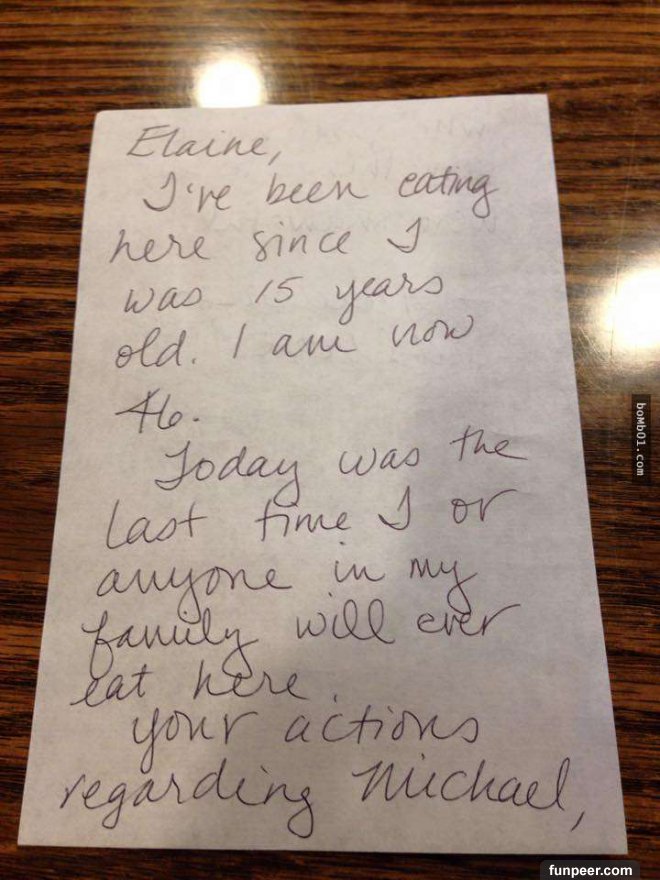 Elaine,
I've been eating
here since I
was 15 years
old. I am now
46.
Today was the
last time I or
anyone in my
family will ever
eat here.
your actions
regarding Michael,
boMb01.com
funpeer.com